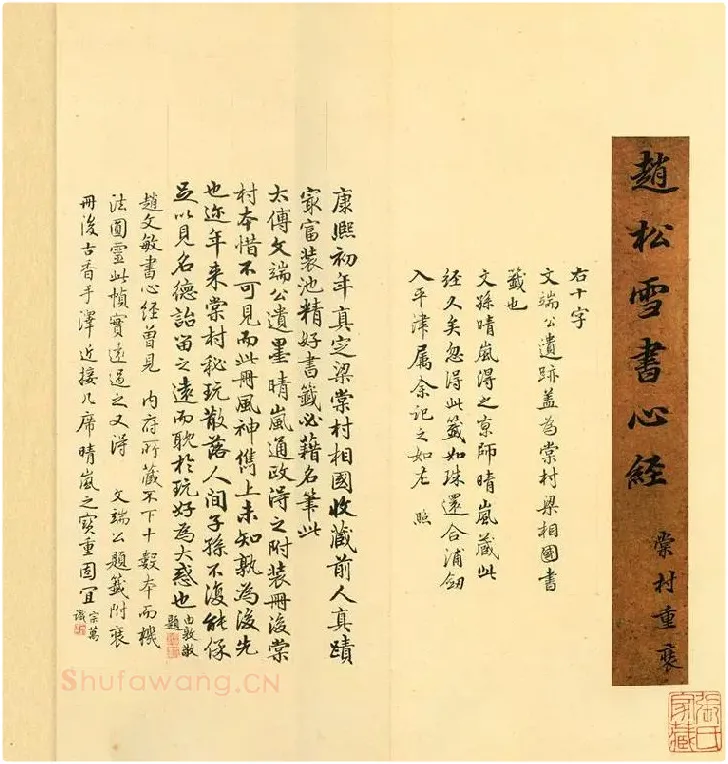 趙松雪書心経
棠村重裝
右十字
文端公遺跡蓋為棠村梁相國書
籤也
文孫晴嵐得之京師晴嵐藏此
経久矣忽得此籤如珠還合浦劒
入平津屬余記之如左 照
康熙初年真定梁棠村相國收藏前人真蹟
家富装池精好書籤必藉名筆此
太傅文端公遺墨晴嵐通政得之附装冊後棠
村本惜不可見而此冊風神儁上未知孰為後先
也迩年来棠村秘玩散落人间子孫不復能保
足以見名德詒留之遠而耽於玩好為大惑也 由敦敬
題
趙文敏書心経曾見 内府所藏不下十數本而機
法圓靈此幀實遠過之又得 文端公題籤附裝
冊後古香手澤近接几席晴嵐之寳重固宜 宗萬
識
張氏家藏
Shufawang.CN